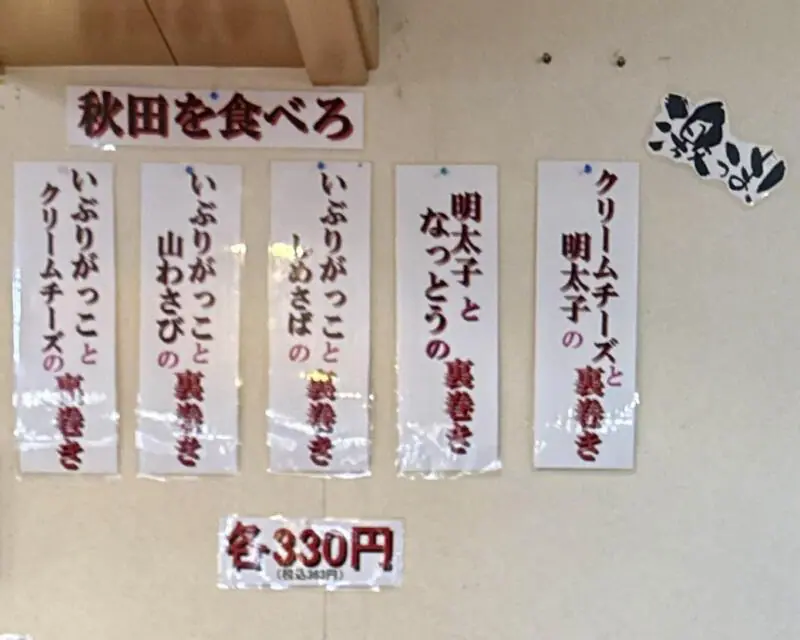 秋田を食べろ
クリームチーズと
明太子の
裏巻き
明太子と
なっとうの
裏巻き
いぶりがっこと
しめさばの
裏巻き
いぶりがっこと
山わさびの
裏巻き
いぶりがっこと
クリームチーズの
裏巻き
各330円
(税込363円)